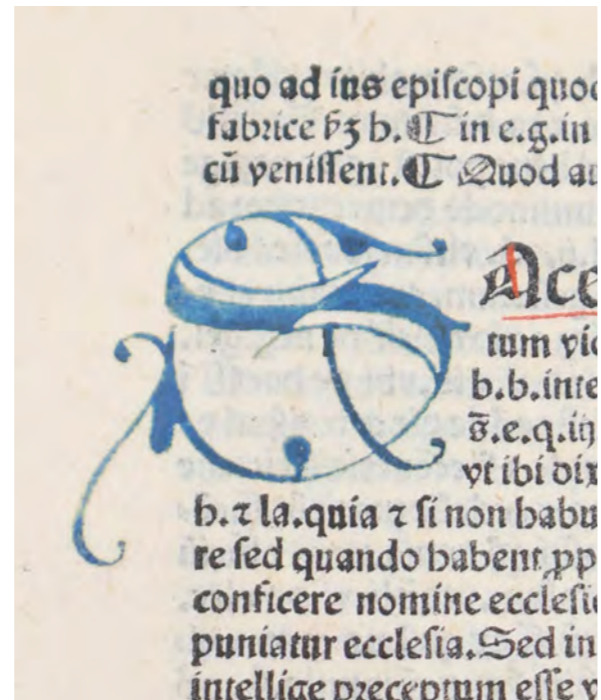 quo ad ius epiſcopi
fabrice hꝫ b. ¶ in e.g.in
cū veniſſent. ¶ Quod au
SAce
tum vi
b.b.inte
s̄.e.q.
vt ibi dix
h.⁊ la.quia ⁊ ſi non habu
re ſed quando habent
conficere nomine eccleſi
puniatur eccleſia.Sed in
intellige preceptum eſſe v